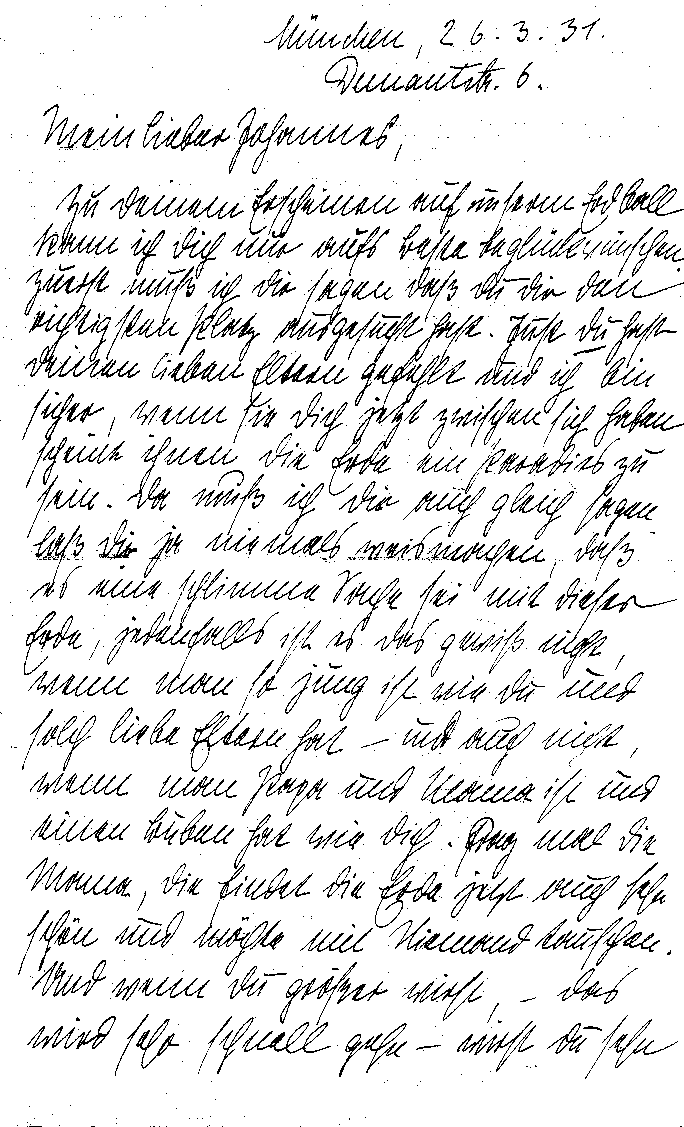 München, 26.3.31.
Demantstr. 6.
Mein lieber Johannes,
Zu deinem Erscheinen auf unserm Erdball
kann ich dich nur aufs beste beglückwünschen.
Zuerst muß ich dir sagen daß du dir den
richtigsten Platz ausgesucht hast. Just du hast
deinen lieben Eltern gefehlt und ich bin
sicher, wenn sie dich jetzt zwischen sich haben
scheint ihnen die Erde ein Paradies zu
sein. Da muß ich dir auch gleich sagen
laß dir ja niemals weismachen, daß
es eine schlimme Sache sei mit dieser
Erde, jedenfalls ist es das gewiß nicht,
wenn man so jung ist wie du und
solch liebe Eltern hat – und auch nicht,
wenn man Papa und Mama ist und
einen Buben hat wie dich. Frag mal die
Mama, die findet die Erde jetzt auch sehr
schön und möchte mit Niemand tauschen.
Und wenn du größer wirst, – das
wird sehr schnell gehn – wirst du sehn